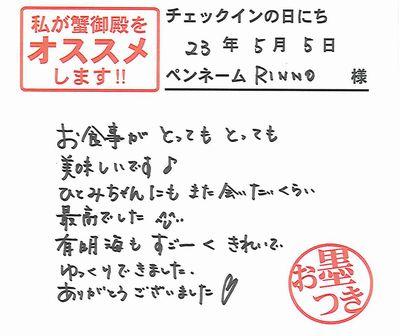 私が蟹御殿を
オススメ
します!!
チェックインの日にち
23年5月5日
ペンネーム RINNO 様
お食事が とっても とっても
美味しいです♪
ひとみちゃんにも また会いたいくらい
最高でした
有明海も すごーく きれいで
ゆっくりできました.
ありがとうございました♡
お墨つき